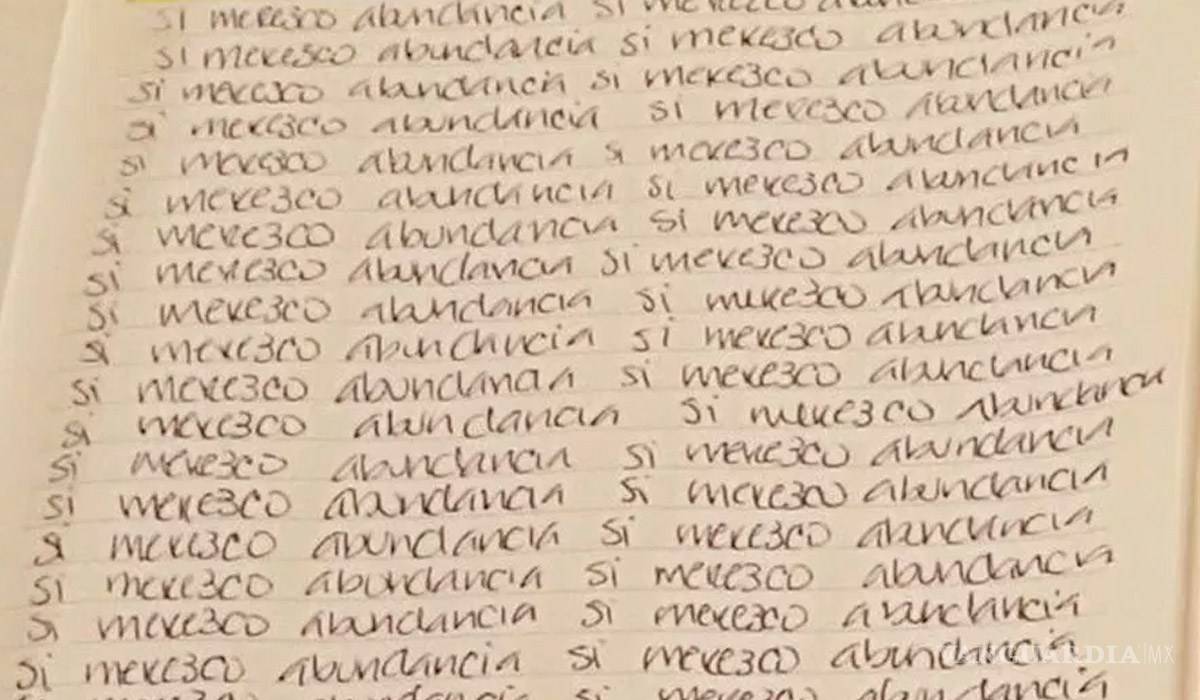 SI merezco abundancia SI merezco
SI meresco abundancia si merezco abundancia
si merezco abundancia si merezco abundancia
si merezco abundancia si merezco abundancia
si merezco abundancia si merezco abundancia
si merezco abundancia si merezco abundancia
si merezco abundancia si merezco abundancia
si merezco abundancia si merezco abundancia
si merezco abundancia si merezco abundancia
si merezco abundancia si merezco abundancia
si merezco abundancia si merezco abundancia
si merezco abundancia si merezco abundancia
si merezco abundancia si merezco abundancia
si merezco abundancia si merezco abundancia
si merezco abundancia si merezco abundancia
si merezco abundancia si merezco abundancia
si merezco abundancia si merezco abundancia
si merezco abundancia si merezco abundancia
VANGUARDIA|MX